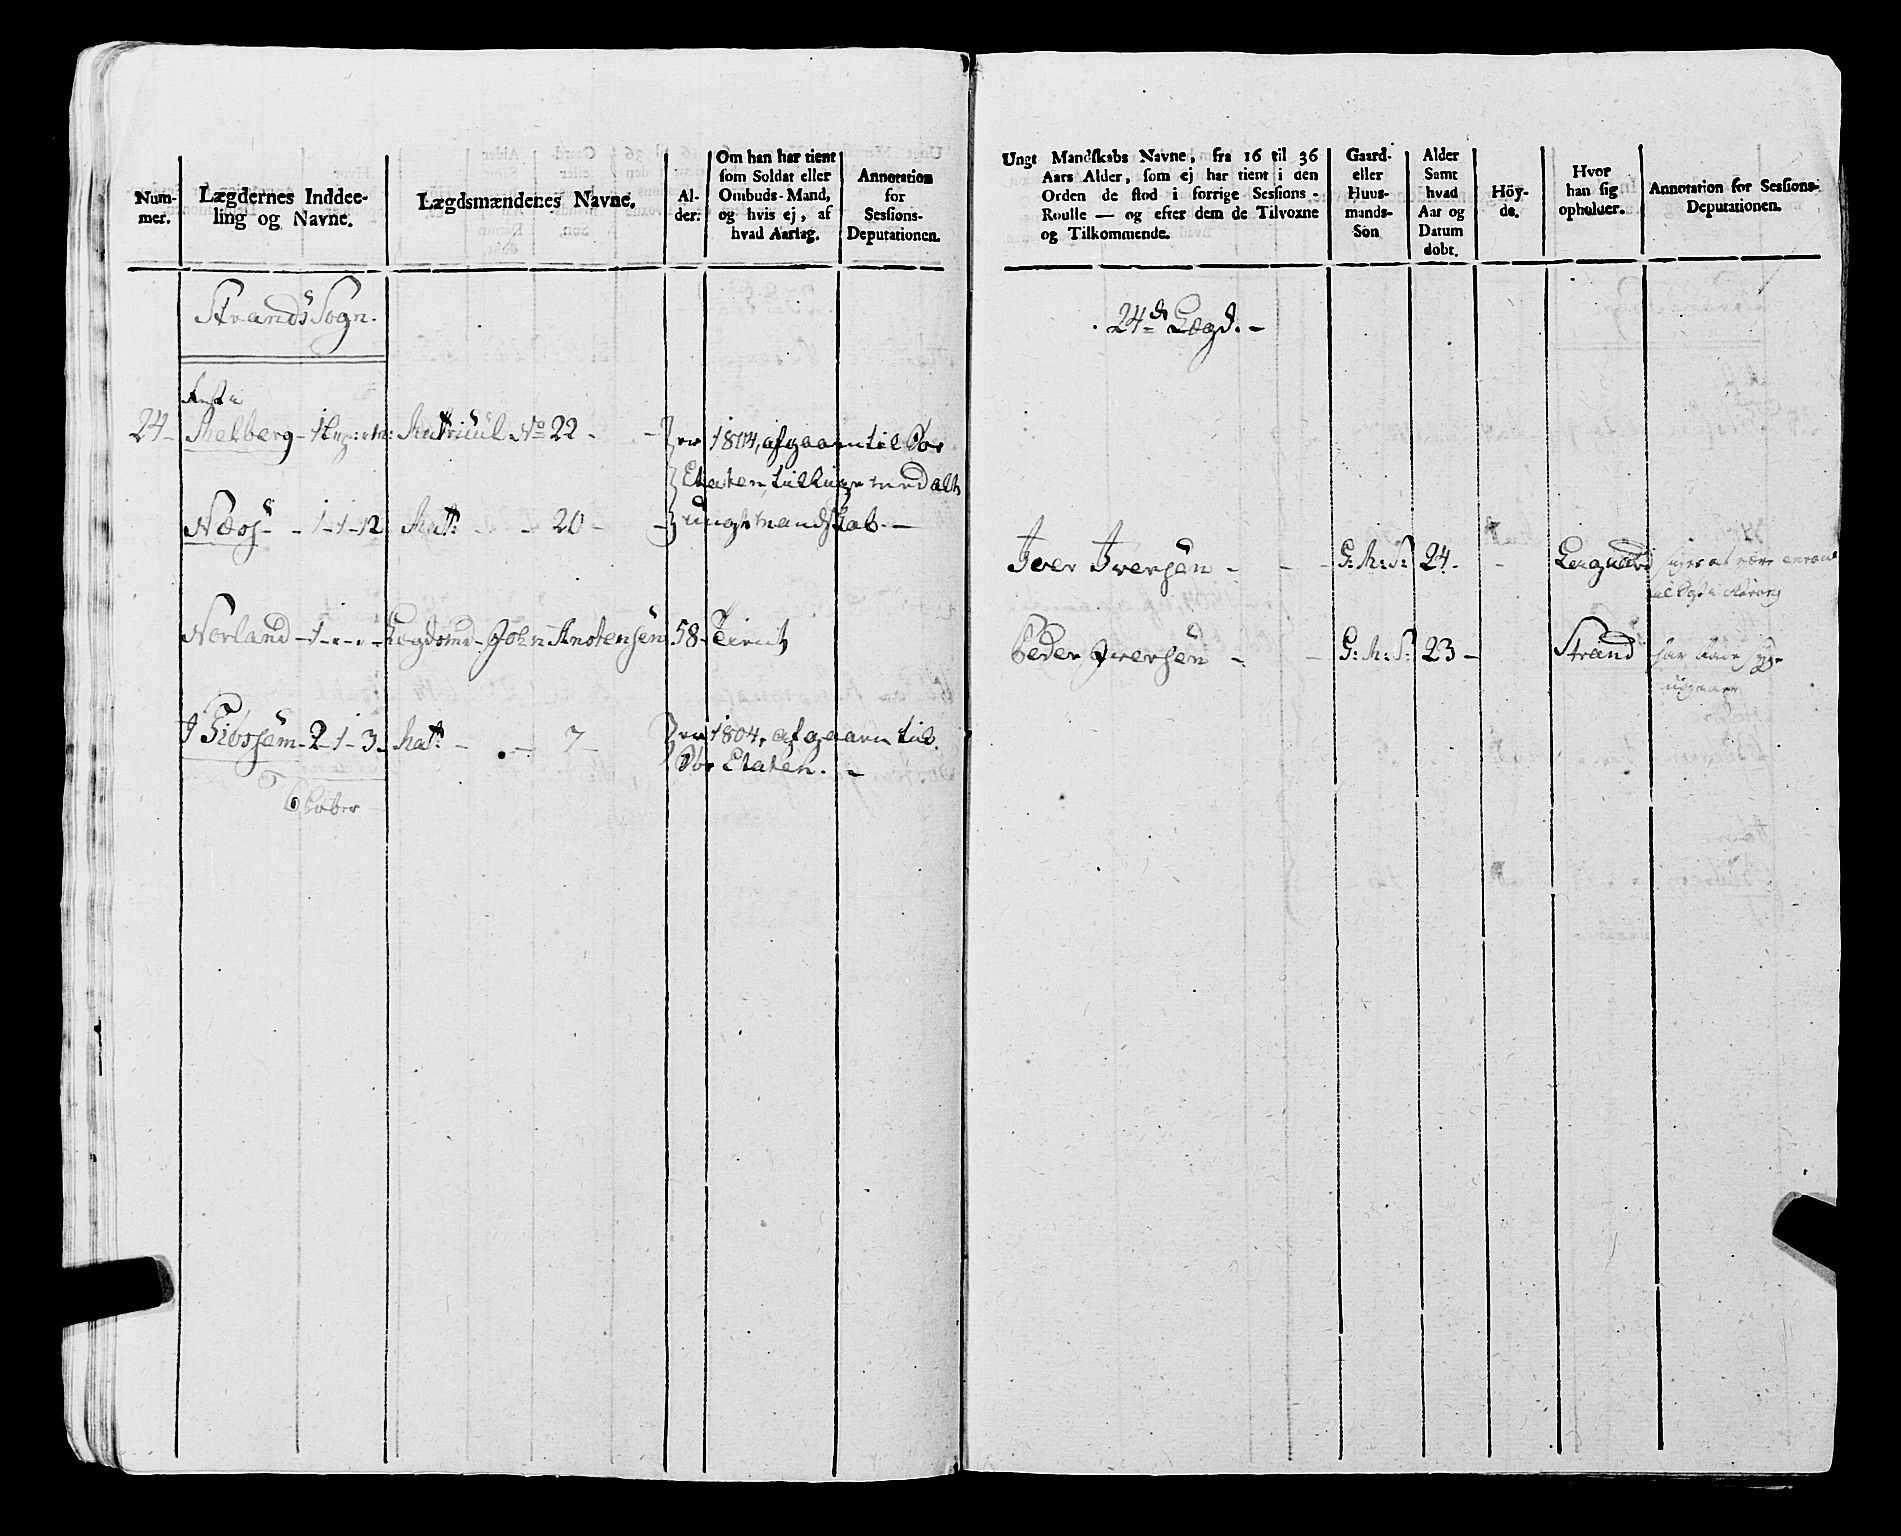 Num-
mer.
Lægdernes Inddee-
ling og Navne.
Lægdsmændenes Navne.
Al-
der.
Om han har tient
som Soldat eller
Ombuds-Mand,
og hvis ej, af
hvad Aarsag.
Annotation
for
Sessions-
Deputationen.
Strands Sogn.
24 - Melberg - 1 Matricul No 22 -
er 1804, afgaaen til Søe
Etaten, tillige med alt
ungt mandskab. -
Næss - - 1 - 1 - 12 Mat: - - 20 -
Norland - 1 - - - Lægdsmd - John Anstensen 58 - Tient
Tiøssem - 2 - 1 - 3 - Mat: - - 7 -
er 1804, afgaaen til
Søe Etaten. -
Ungt Mandskabs Navne, fra 16 til 36
Aars Alder, som ej har tient i den
Orden de stod i forrige Sessions-
Roulle — og efter dem de Tilvoxne
og Tilkommende.
Gaard-
eller
Huus-
mands-
Son
Alder
Samt
hvad
Aar og
Datum
dobt.
Höy-
de.
Hvor
han sig
opholder.
Annotation for Sessions-
Deputationen.
24de Lægd. -
Iver Iversen - - - G: M: S: 24 - - siges at være
Peder Iversen - - G: M: S: 23 - Strand har